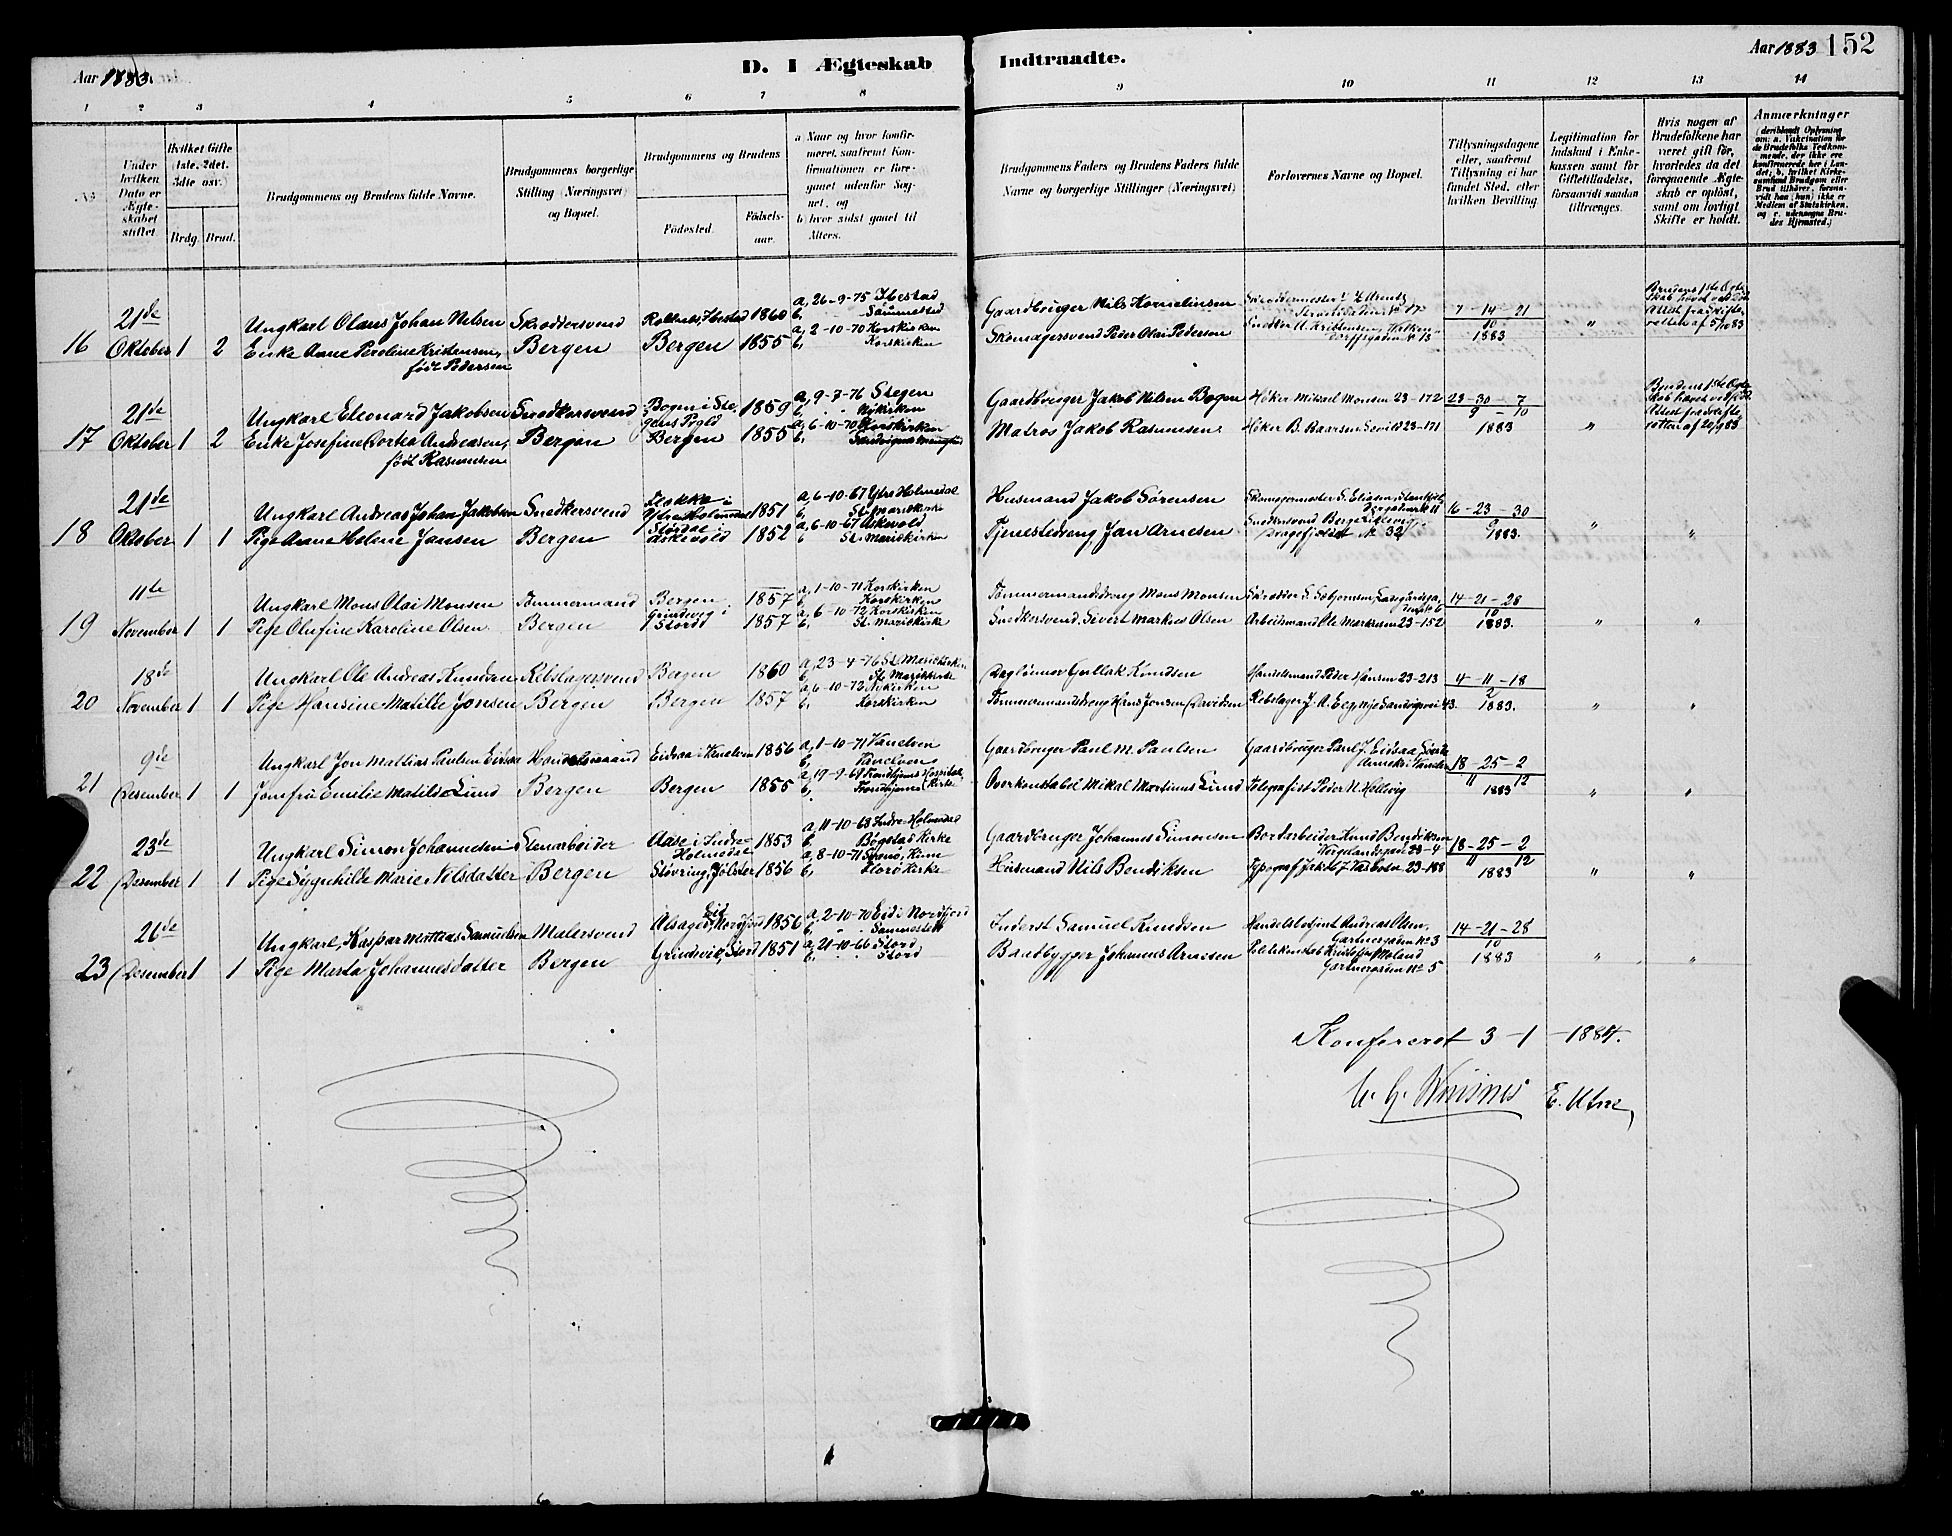 Aar 1883
D. I Ægteskab
Indtraadte.
Aar 1883 152
1 2 3 4 5 6 7 8 9 10 11 12 13 14
No
Under hvilken Dato er Ægteskabet stiftet
Hvilket Gifte (1ste, 2det, 3die osv.)
Brdg. Brud.
Brudgommens og Brudens fulde Navne.
Brudgommens borgerlige Stilling (Næringsvei) og Bopæl.
Brudgommens og Brudens
Fødested. Fødselsaar.
a Naar og hvor konfirmeret, saafremt Konfirmationen er foregaaet udenfor Sognet, og
b hvor sidst gaaet til Alters.
Brudgommens Faders og Brudens Faders fulde Navne og borgerlige Stillinger (Næringsvei)
Forlovernes Navne og Bopæl.
Tillysningsdagene eller, saafremt Tillysning ei har fundet Sted, efter hvilken Bevilling.
Legitimation for Indskud i Enkekassen samt for Giftetilladelse, forsaavidt saadan tiltrænges.
Hvis nogen af Brudefolkene har været gift før, hvorledes da det foregaaende Ægteskab er opløst, samt om lovligt Skifte er holdt.
Anmærkninger
16 21de Oktober 1 2
Ungkarl Olaus Johan Nilsen Skræddersvend Ibestad 1860 a, 26-9-75 Ibestad
b, Sammested
Enke Anne Peroline Kristensen, født Pedersen Bergen Bergen 1855 a, 2-10-70 Korskirken
b, Korskirken
Gaardbruger Nils Kornelinsen
Skomagersvend Peder Olai Pedersen
7-14-21
10
1883 "
Brudens 1ste Ægteskab hævet ved Død Attest fra Skifteretten af 5/10 83
17 21de Oktober 1 2
Ungkarl Eleonard Jakobsen Snedkersvend Bogen i Stegens Pgld 1859 a, 9-7-76 Stegen
b, Nykirken
Enke Josefine Dortea Andreasen, født Rasmusen Bergen Bergen 1855 a, 6-10-70 Korskirken
b,
Gaardbruger Jakob Nilsen Bogen Høker Mikael Monsen 23-172 23-30-7
9-10
Matros Jakob Rasmusen Høker B. Baarsen 23-171 1883 "
Brudens 1ste Ægteskab hævet ved Død Attest fra Skifteretten af 20/9 83
18 21de Oktober 1 1
Ungkarl Andreas Johan Jakobsen Snedkersvend Flekke i Ytre Holmedal 1851 a, 6-10-67 Ytre Holmedal
b, St. Mariekirke
Pige Anne Helene Jansen Bergen Størdal i Askevold 1852 a, 6-10-67 Askevold
b St. Mariekirken
Husmand Jakob Sørensen
Tjenestedreng Jan Arnesen № 32
16-23-30
9
1883. " "
19 11te November 1 1
Ungkarl Mons Olai Monsen Tømmermand Bergen 1857 a, 1-10-71 Korskirken
b, Korskirken
Pige Olufine Karoline Olsen Bergen Grindevig i Stord 1857 a, 6-10-72 Korskirken
b, St. Mariekirke
Tømmermandsdreng Mons Monsen
Snedkersvend Sivert Markus Olsen Arbeidsmand Ole Markusen 23-152
14-21-28
10
1883. " "
20 18de November 1 1
Ungkarl Ole Andreas Knudsen Rebslagersvend Bergen 1860 a, 23-4-76 St. Mariekirken
b, St. Mariekirke
Pige Hansine Matilde Jonsen Bergen Bergen 1857 a, 6-10-72 Nykirken
b, Korskirken
Dagleiner Gullak Knudsen Handelsmand Peder Hansen 23-213 4-11-18
2
Tømmermandsdreng Hans Jonsen Davidsen Rebslager J. A. 1883. " "
21 9de Desember 1 1
Ungkarl Jon Mattias Paulsen Eidsaa Handelsmand Eidsaa i Vanelven 1856 a, 1-10-71 Vanelven
b, Vanelven
Jomfru Emilie Matilde Lund Bergen Bergen 1855 a, 19-9-69 Trondhjems Hospitalskirke
b, Trondhjems
Gaardbruger Paul M. Paulsen Gaardbruger Paul J. Eidsaa 18-25-2
11 12
Overkonstabel Mikal Martinus Lund Telegrafist Peder N. Hellvig 1883 " "
22 23de Desember 1 1
Ungkarl Simon Johannesen Stenarbeider Aase i Indre Holmedal 1853 a, 11-10-68 Indre Holmedal
b, Bøgstad Kirke
Pige Sygnhilde Marie Nilsdatter Bergen Støvring, Jølster 1856 a, 8-10-71 Kinn
b, Florø Kirke
Gaardbruger Johannes Simonsen Bordarbeider Knud Bendiksen Wergelandsgade 23-4 18-25-2
11 12
Husmand Nils Bendiksen Typograf Jakob J. 23-188 1883 " "
23 26de Desember 1 1
Ungkarl Kaspar Mattias Samuelsen Malersvend Eid Nordfjord 1856 a, 2-10-70 Eid i Nordfjord
b, Sammested
Pige Marta Johannesdatter Bergen Grindevig, Stord 1851 a, 21-10-66 Stord
b, Stord
Inderst Samuel Knudsen Handelsbetjent Andreas Olsen, Gartnergaden № 3 14-21-28
10
Baadbygger Johannes Arnesen Politikonstab. Kristofer Moland Gartnergaden № 5 1883 " "
Konfereret 3-1-1884.
E. Utne